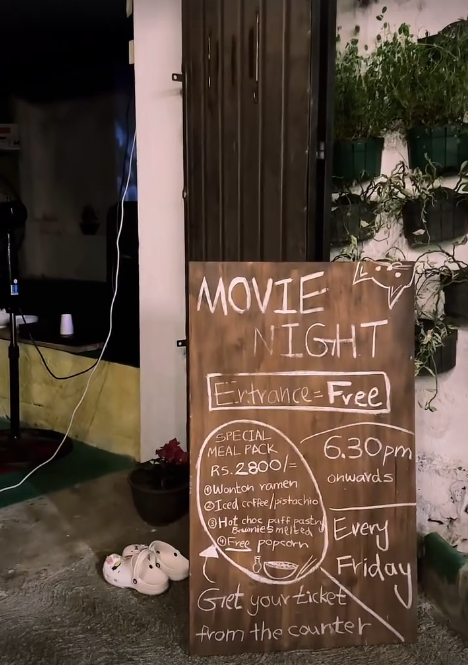 MOVIE
NIGHT
Entrance = Free
SPECIAL
MEAL PACK
RS. 2800/=
① Wonton ramen
② Iced coffee/pistachio
③ Hot choc puff pastry
Brownies melted
④ Free popcorn
6.30pm
onwards
Every
Friday
Get your ticket
from the counter